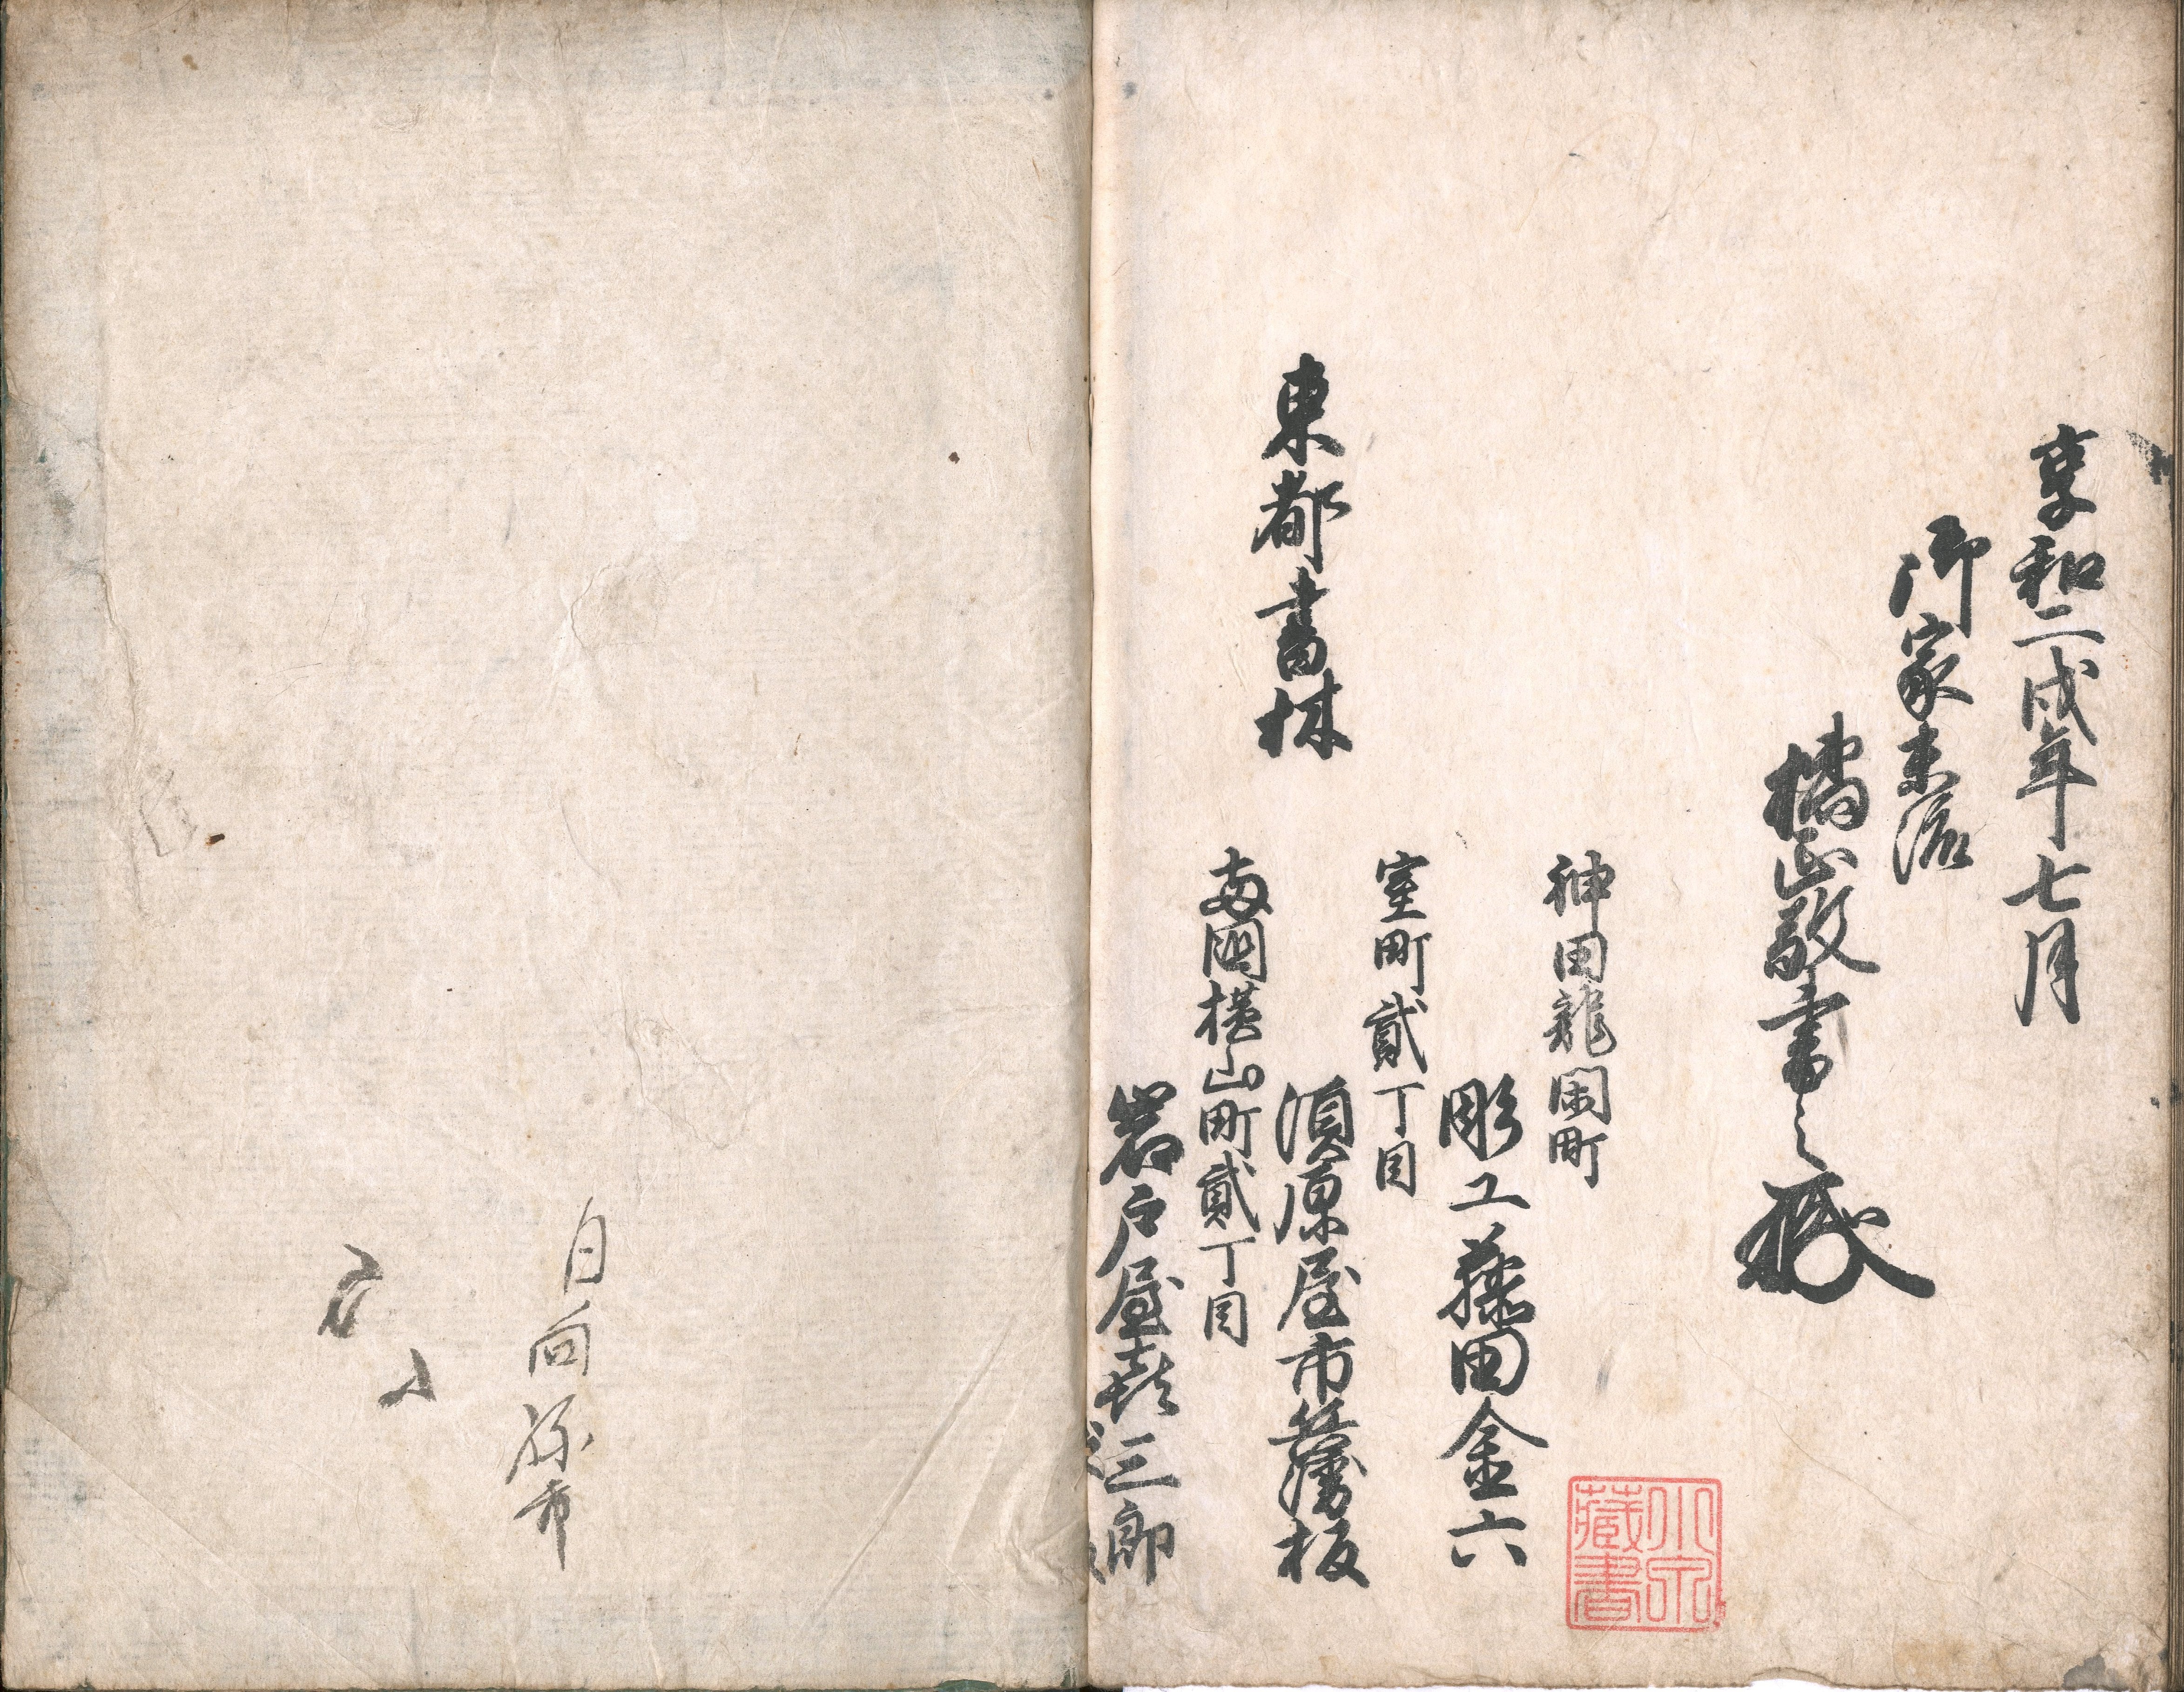 享和二戌年七月
御家末流
橘正敬書之
神田龍閑町
彫工藤田金六
室町貳丁目
須原屋市兵衛板
東都書林
両國横山町貳丁目
岩戸屋喜三郎
藏書
日向